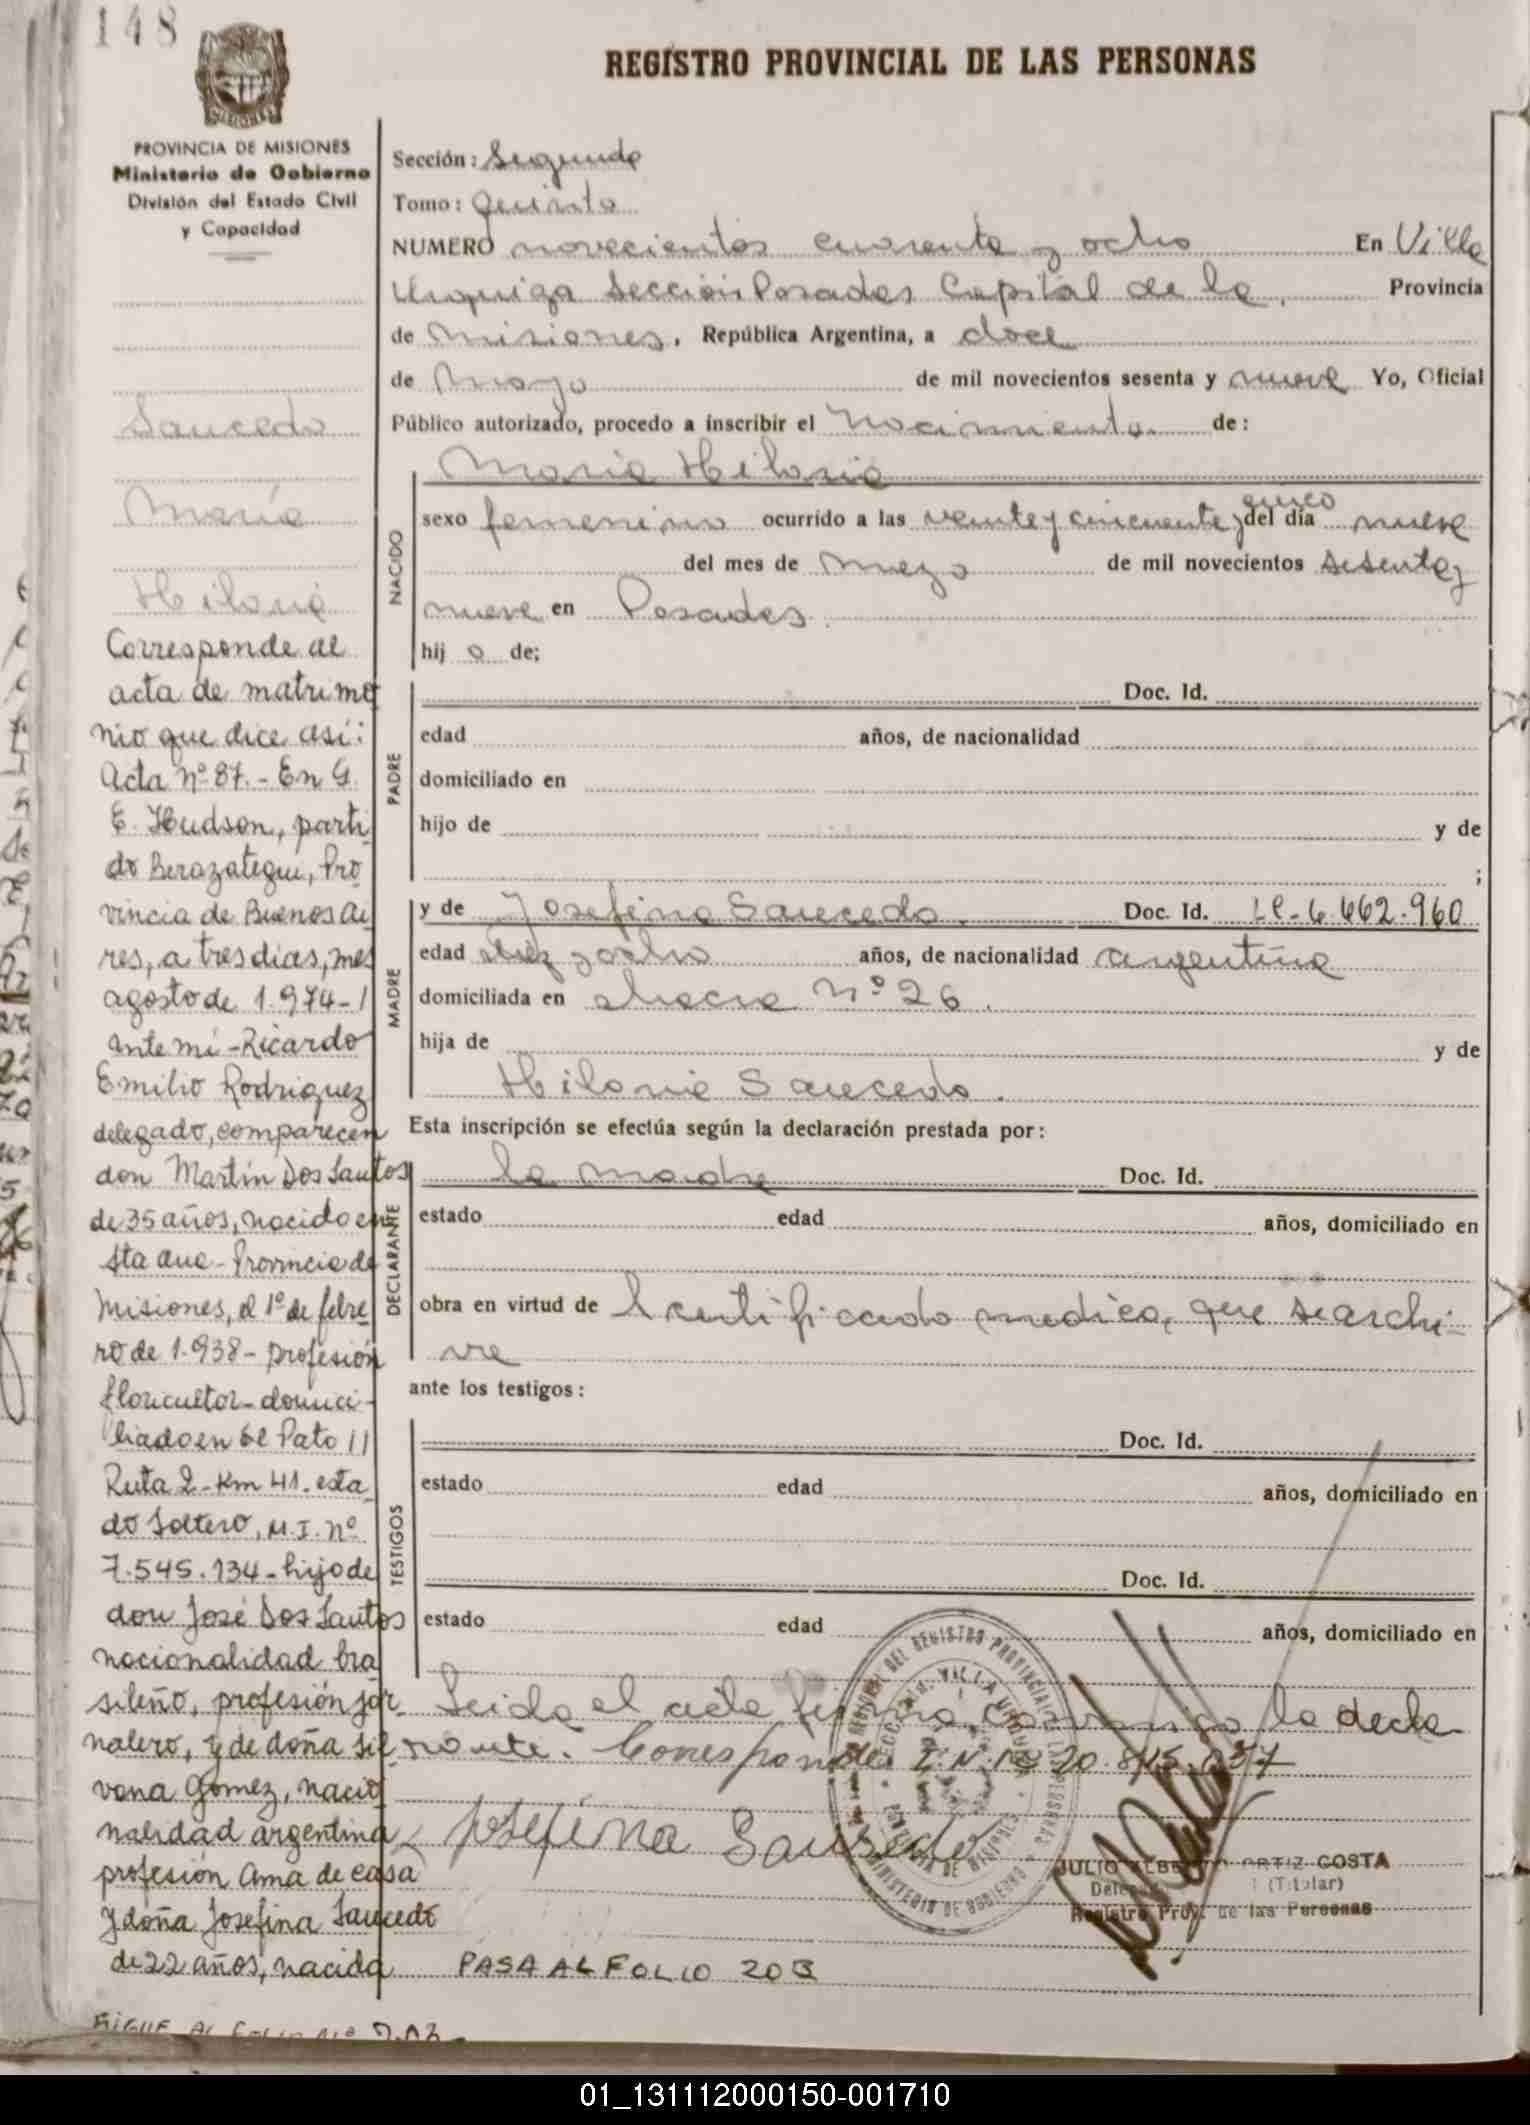 148
REGISTRO PROVINCIAL DE LAS PERSONAS
MISIONES
PROVINCIA DE MISIONES
Ministerio de Gobierno
División del Estado Civil
y Capacidad
Saucedo
María
Hilaria
Corresponde al
acta de matrimo
nio que dice así:
Acta Nº 87.- En G.
E. Hudson, parti
do Berazategui, Pro
vincia de Buenos Ai
res, a tres dias, mes
agosto de 1.974-
Ante mí - Ricardo
Emilio Rodriguez
delegado, comparecen
don Martín Dos Santos
de 35 años, nacido en
Sta Ana - Provincia de
Misiones, el 1º de febre
ro de 1.938 - profesión
floricultor - domici-
liado en el Pato
Ruta 2 - Km 41. esta
do Soltero, M.I. Nº
7.545.134 - hijo de
don José Dos Santos
nacionalidad bra
sileño, profesión jor
nalero, y de doña Sil
vana Gomez, nacio
nalidad argentina
profesión Ama de casa
y doña Josefina Saucedo
de 22 años, nacida
SIGUE AL FOLIO Nº 203.
Sección: Segunda
Tomo: Quinto
NUMERO novecientos cuarenta y ocho En Villa
Urquiza Sección Posadas Capital de la, Provincia
de Misiones, República Argentina, a doce
de Mayo de mil novecientos sesenta y nueve Yo, Oficial
Público autorizado, procedo a inscribir el Nacimiento de:
María Hilaria
NACIDO
sexo femenino ocurrido a las veinte y cincuenta y cinco del día nueve
del mes de mayo de mil novecientos sesenta y
nueve en Posadas.
hij a de;
PADRE
Doc. Id.
edad años, de nacionalidad
domiciliado en
hijo de y de
;
MADRE
y de Josefina Saucedo. Doc. Id. LC-6.662.960
edad diez y ocho años, de nacionalidad argentina
domiciliada en chacra Nº 26.
hija de y de
Hilaria Saucedo.
Esta inscripción se efectúa según la declaración prestada por:
DECLARANTE
la madre Doc. Id.
estado edad años, domiciliado en
obra en virtud de certificado medico, que se archi-
va
ante los testigos:
TESTIGOS
Doc. Id.
estado edad años, domiciliado en
Doc. Id.
estado edad años, domiciliado en
Leida el acta firmó conmigo la decla
rante. Corresponde I.N. Nº 20.815.037
Josefina Sausedo
JULIO ALBERTO ORTIZ COSTA
(Titular)
Registro Prov. de las Personas
PASA AL FOLIO 203
01_131112000150-001710